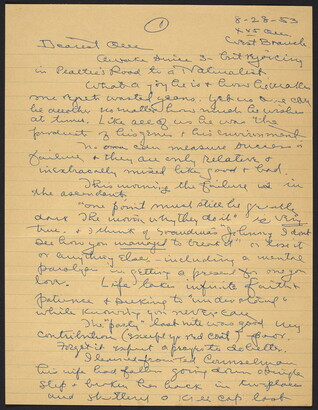 1
8-28-53
West Branch
Dearest Dear
Awake since 3 - but rejoicing
in Peattie's Road to a Naturalist.
What a joy he is & how he makes
one regret wasted years. Yet no one can
be another no matter how much he wishes
at times. Like all of us he was the
product of his genes & his environment
No man can measure success or
failure & they are only relative &
inextricably mixed like good & bad.
This morning the failure is in
the ascendant.
"one point must still be greatly
dark The moving why they do it" is very
true. & I think of Grandma's "Johnny I don't
see how you managed to break it" or lose it
or anything else - including a mental
paralysis in getting a present for one you
love. Life takes infinite faith &
patience & seeking to "understand"
while knowing you never can.
The "party" last nite was good my
contribution (except yr red coat) poor.
Forget it except a progress to do better.
I learned from Ted Counselman
his wife had fallen going down
step & broken her back in two places
and shattered a knee cap last